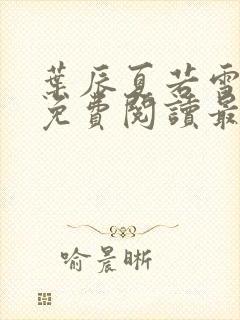 葉辰夏若雪
免費閱讀最
喻晨晰